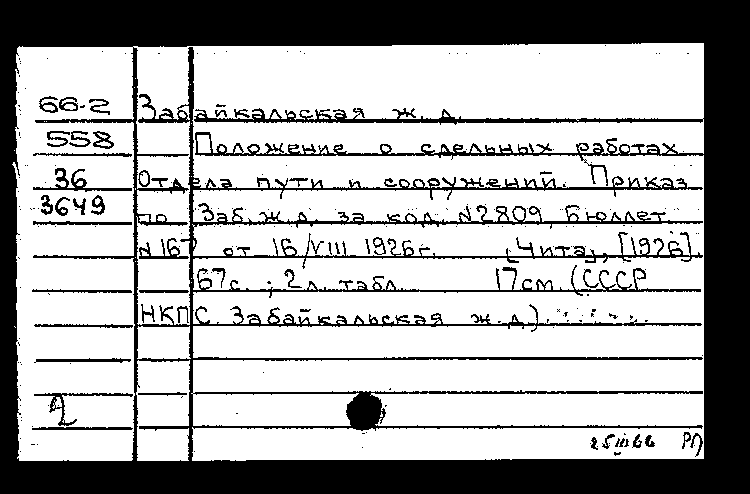 66-2 Забайкальская ж. д.
558 Положение о сдельных работах
36 Отдела пути и сооружений. Приказ
3649 по Заб.ж.д. за код. N2809, Бюллет.
N 167 от 16/VIII 1926г. [Чита], [1926].
67с. ; 2л. табл. 17см. (СССР
НКПС. Забайкальская ж.д.).
2
25 III 66 РП